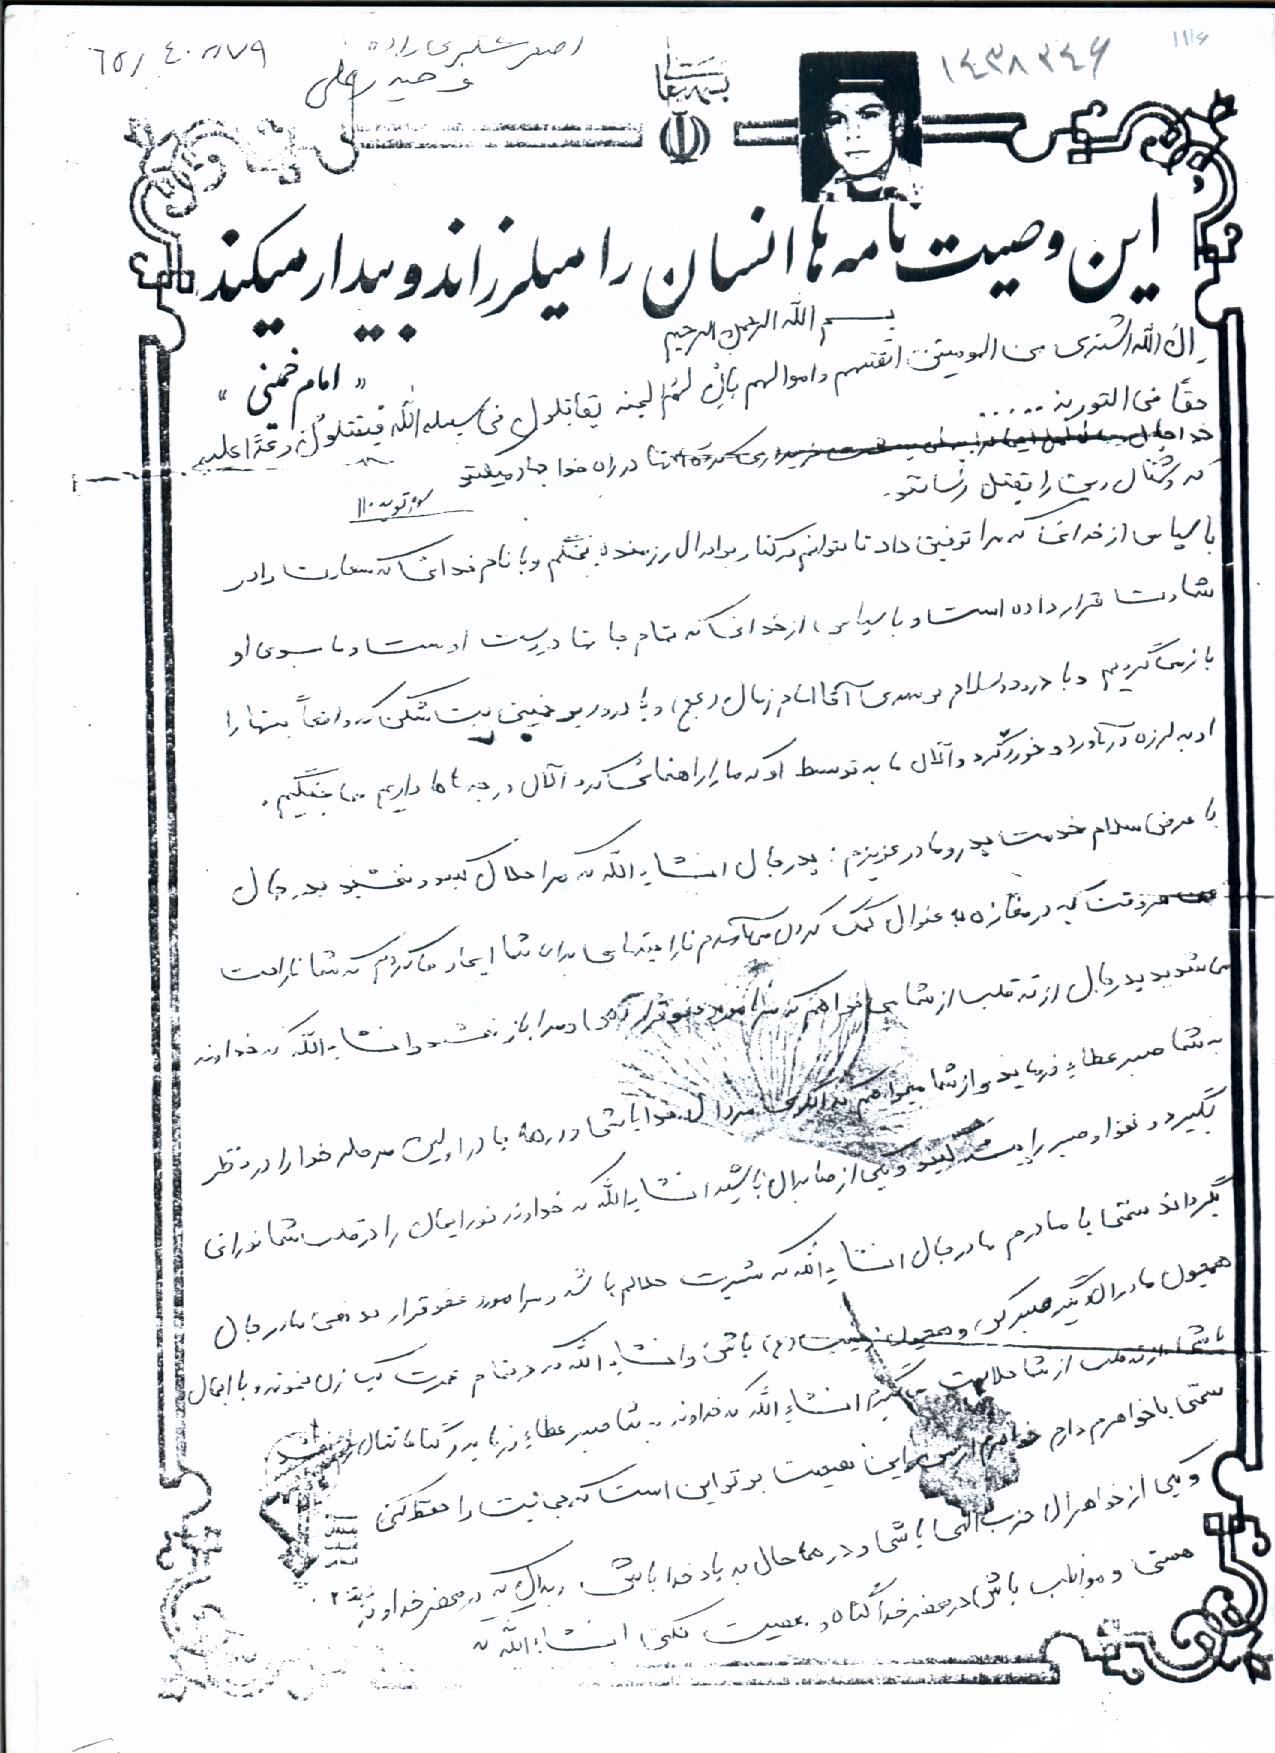 بسمه تعالی
این وصیت نامه ها انسان را میلرزاند و بیدار میکند
« امام خمینی »
بسم الله الرحمن الرحیم
ان الله اشتری من المومنین انفسهم و اموالهم بان لهم الجنه یقاتلون فی سبیل الله فیقتلون وعدا علیه
حقا فی التوریة .....
در راه خدا جهاد میکنند
که دشمنان دین را بقتل رسانند.
سوره توبه ۱۱۰
با سپاس از خدائی که مرا توفیق داد تا بتوانم در کنار برادران رزمنده بجنگم و با نام خدائی که سعادت را در
شهادت قرار داده است و با سپاس از خدائی که تمام جانها در دست اوست و ما بسوی او
باز میگردیم و با درود و سلام بر مهدی آقا امام زمان (عج) و با درود بر خمینی بت شکن که واقعاً بتها را
او به لرزه درآورد و خورد کرد و الان ما به توسط او که ما را راهنمائی کرد الان در جبهه ها داریم می جنگیم.
با عرض سلام خدمت پدر و مادر عزیزم: پدر جان انشاءالله که مرا حلال کنید و ببخشید پدر جان
هر وقت که در مغازه به عنوان کمک کردن می آمدم ناراحتی برای شما ایجاد میکردم که شما ناراحت
می شدید پدر جان از ته قلب از شما می خواهم که مرا مورد عفو قرار دهی و مرا باز بخشید و انشاءالله که خداوند
به شما صبر عطاء فرماید و از شما میخواهم که الگوی مردان خدا باشی و در همه جا در اولین مرحله خدا را در نظر
بگیرد و تقوا و صبر را پیشه کنید و یکی از صابران باشید انشاءالله که خداوند نور ایمان را در قلب شما نورانی
بگرداند سخنی با مادرم مادر جان انشاءالله که شیرت حلالم باشد و مرا مورد عفو قرار بدهی مادر جان
همچون مادران دیگر صبر کن و همچون زینب (ع) باش و انشاءالله که در تمام عمرت یک زن نمونه و با ایمان
باشی از ته قلب از شما حلالیت میگیرم انشاءالله که خداوند به شما صبر عطاء فرماید و گناهانتان را
سخنی با خواهرم دارم خواهرم این نصیحت بر تو این است که حجابت را حفظ کنی
و یکی از خواهران حزب اللهی باشی و در همه حال به یاد خدا باشی و بدان که در محضر خداوند
هستی و مواظب باش در محضر خدا گناه و معصیت نکنی انشاءالله که